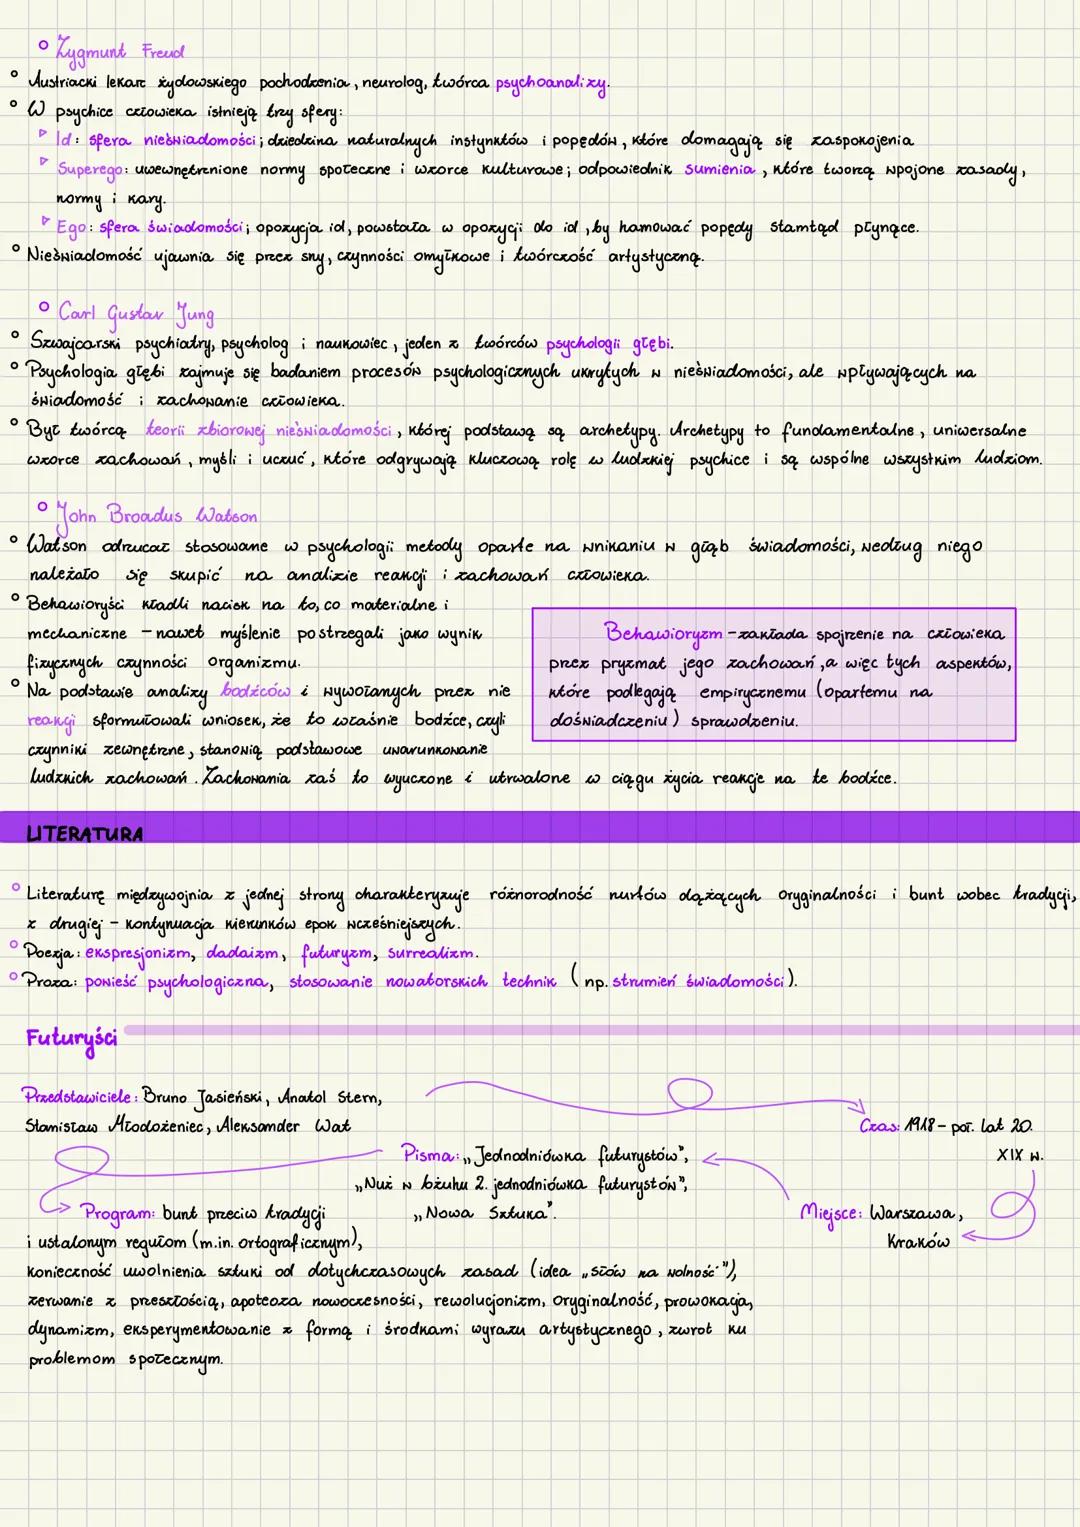 Zygmunt Freud
Austriacki lekarz żydowskiego pochodzenia, neurolog, twórca psychoanalizy.
W psychice człowieka istnieją trzy sfery:
Id: sfera nieświadomości; dziedzina naturalnych instynktów i popędów, które domagają się zaspokojenia
Superego: uwewnętrznione normy społeczne i wzorce kulturowe; odpowiednik sumienia, które tworzą wpojone zasady,
normy i kary.
Ego: sfera świadomości; opozycja id, powstała w opozycji do id, by hamować popędy stamtąd płynące.
Nieświadomość ujawnia się przez sny, czynności omyłkowe i twórczość artystyczną.
Carl Gustav Jung
Szwajcarski psychiatry, psycholog i naukowiec, jeden z twórców psychologii głębi.
Psychologia głębi zajmuje się badaniem procesów psychologicznych ukrytych w nieświadomości, ale wpływających na
świadomość i zachowanie człowieka.
Był twórcą teorii zbiorowej nieświadomości, której podstawą są archetypy. Archetypy to fundamentalne, uniwersalne
wzorce zachowań, myśli i uczuć, które odgrywają kluczową rolę w ludzkiej psychice i są wspólne wszystkim ludziom.
John Broadus Watson
Watson odrzucał stosowane w psychologii metody oparte na wnikaniu w głąb świadomości, według niego
należało się skupić na analizie reakcji i zachowań człowieka.
Behawioryści kładli nacisk na to, co materialne i
mechaniczne – nawet myślenie postrzegali jako wynik
fizycznych czynności organizmu.
Na podstawie analizy bodźców i wywołanych przez nie
reakcji sformułowali wniosek, że to właśnie bodźce, czyli
czynniki zewnętrzne, stanowią podstawowe uwarunkowanie
ludzkich zachowań. Zachowania zaś to wyuczone i utrwalone w ciągu życia reakcje na te bodźce.
Behawioryzm – zakłada spojrzenie na człowieka
przez pryzmat jego zachowań, a więc tych aspektów,
które podlegają empirycznemu (opartemu na
doświadczeniu) sprawdzeniu.
LITERATURA
Literaturę międzywojnia z jednej strony charakteryzuje różnorodność nurtów dążących oryginalności i bunt wobec tradycji,
z drugiej – kontynuacja kierunków epok wcześniejszych.
Poezja: ekspresjonizm, dadaizm, futuryzm, surrealizm.
Proza: powieść psychologiczna, stosowanie nowatorskich technik (np. strumień świadomości).
Futuryści
Przedstawiciele: Bruno Jasieński, Anatol Stern,
Stanisław Młodożeniec, Aleksander Wat
Czas: 1918 – poł. lat 20.
XIX w.
Pisma: „Jednodniówka futurystów",
„Nuż w bżuhu 2. jednodniówka futurystów",
„Nowa Sztuka".
Miejsce: Warszawa,
Kraków
Program: bunt przeciw tradycji
i ustalonym regułom (m.in. ortograficznym),
konieczność uwolnienia sztuki od dotychczasowych zasad (idea „słów na wolność"),
zerwanie z przeszłością, apoteoza nowoczesności, rewolucjonizm, oryginalność, prowokacja,
dynamizm, eksperymentowanie z formą i środkami wyrazu artystycznego, zwrot ku
problemom społecznym.